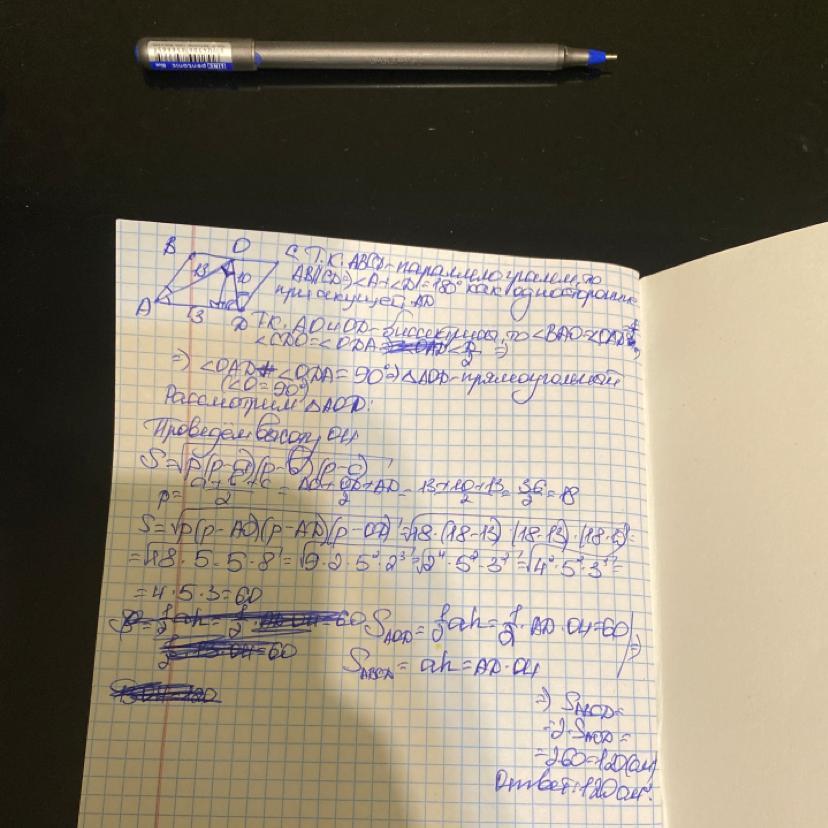 LINC pentonic
B O C
13 10
A 13 D
Т.К. ABCD-параллелограмм, то
AB||CD ⇒ ∠A+∠D=180° как односторонние
при секущей AD
Т.К. AO и OD-биссектрисы, то ∠BAO=∠OAD
∠CDO=∠ODA
⇒ ∠OAD+∠ODA=90° ⇒ △AOD-прямоугольный
(∠O=90°)
Рассмотрим △AOD:
Проведём высоту OH
S=√p(p-a)(p-b)(p-c)
p= a+b+c/2 = AO+OD+AD/2 = 13+10+13/2 = 36/2 = 18
S=√p(p-AO)(p-AD)(p-OD) =√18·(18-13)·(18-13)·(18-8) =
=√18·5·5·8 =√9·2·5²·2³ =√2⁴·5²·3² =√4²·5²·3² =
=4·5·3=60
S=1/2ah=1/2·AD·OH=60 S_AOD=1/2ah=1/2·AD·OH=60
S_ABCD=ah=AD·OH ⇒
⇒ S_ABCD=
=2·S_AOD=
=2·60=120(см)
Ответ: 120 см².